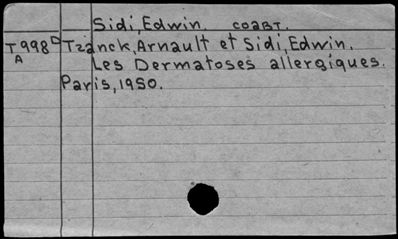 Sidi, Edwin. COABT.
T998D Tzanck, Arnault et Sidi, Edwin.
A Les Dermatoses allergiques.
Paris, 1950.